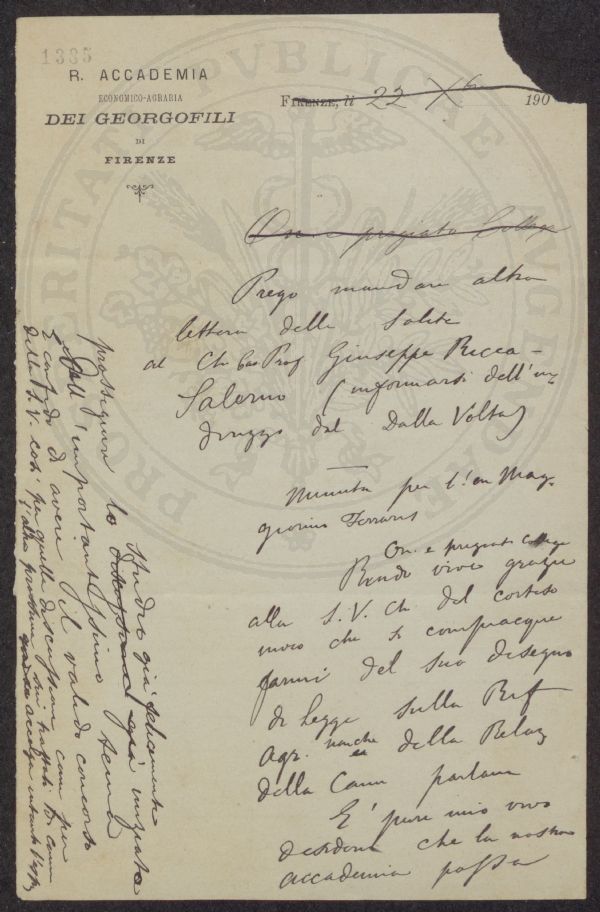 1335
R. ACCADEMIA
ECONOMICO-AGRARIA
DEI GEORGOFILI
DI
FIRENZE
FIRENZE, li 22 Xbre 190
On. e pregiato Collega
Prego mandare altra
lettera delle solite
al Ch. Prof Giuseppe Ricca-
Salerno (informarsi dell'in
dirizzo dal Dalla Volta)
Minuta per l'on Mag-
giorino Ferraris
On. e pregiato Collega
Rendo vive grazie
alla S.V. Ch. del cortese
invio che si compiacque
farmi del suo disegno
di Legge sulla Rif
Agr. nonche della Relaz
della Comm parlam
E' pure mio vivo
desiderio che la nostra
accademia possa
proseguire lo studio già seriamente
discussione già iniziata
dell'importantissimo tema
E confido di avere il valido concorso
della S.V. così per quelle discussioni come per